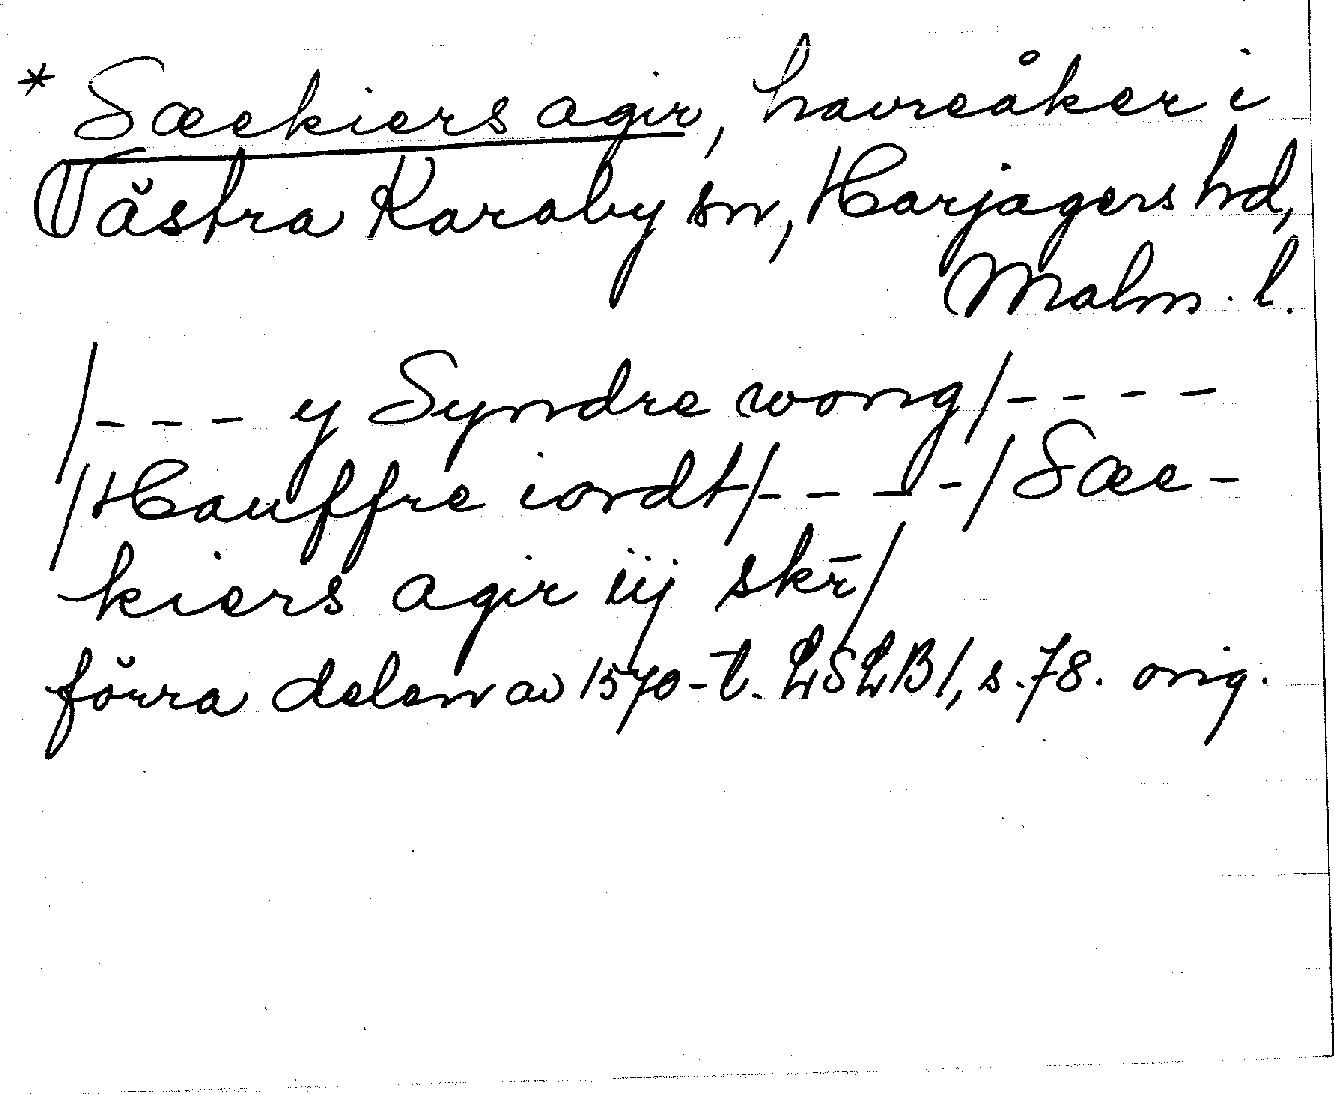 * Sæekiers agir, havreåker i
Västra Karaby sn, Harjagers hd,
Malm. l.
/--- y Syndre wong/----
/Hauffre iordt/----/Sæe-
kiers agir iij skr̄/
förra delen av 1570-t. LSLB1, s. 78. orig.